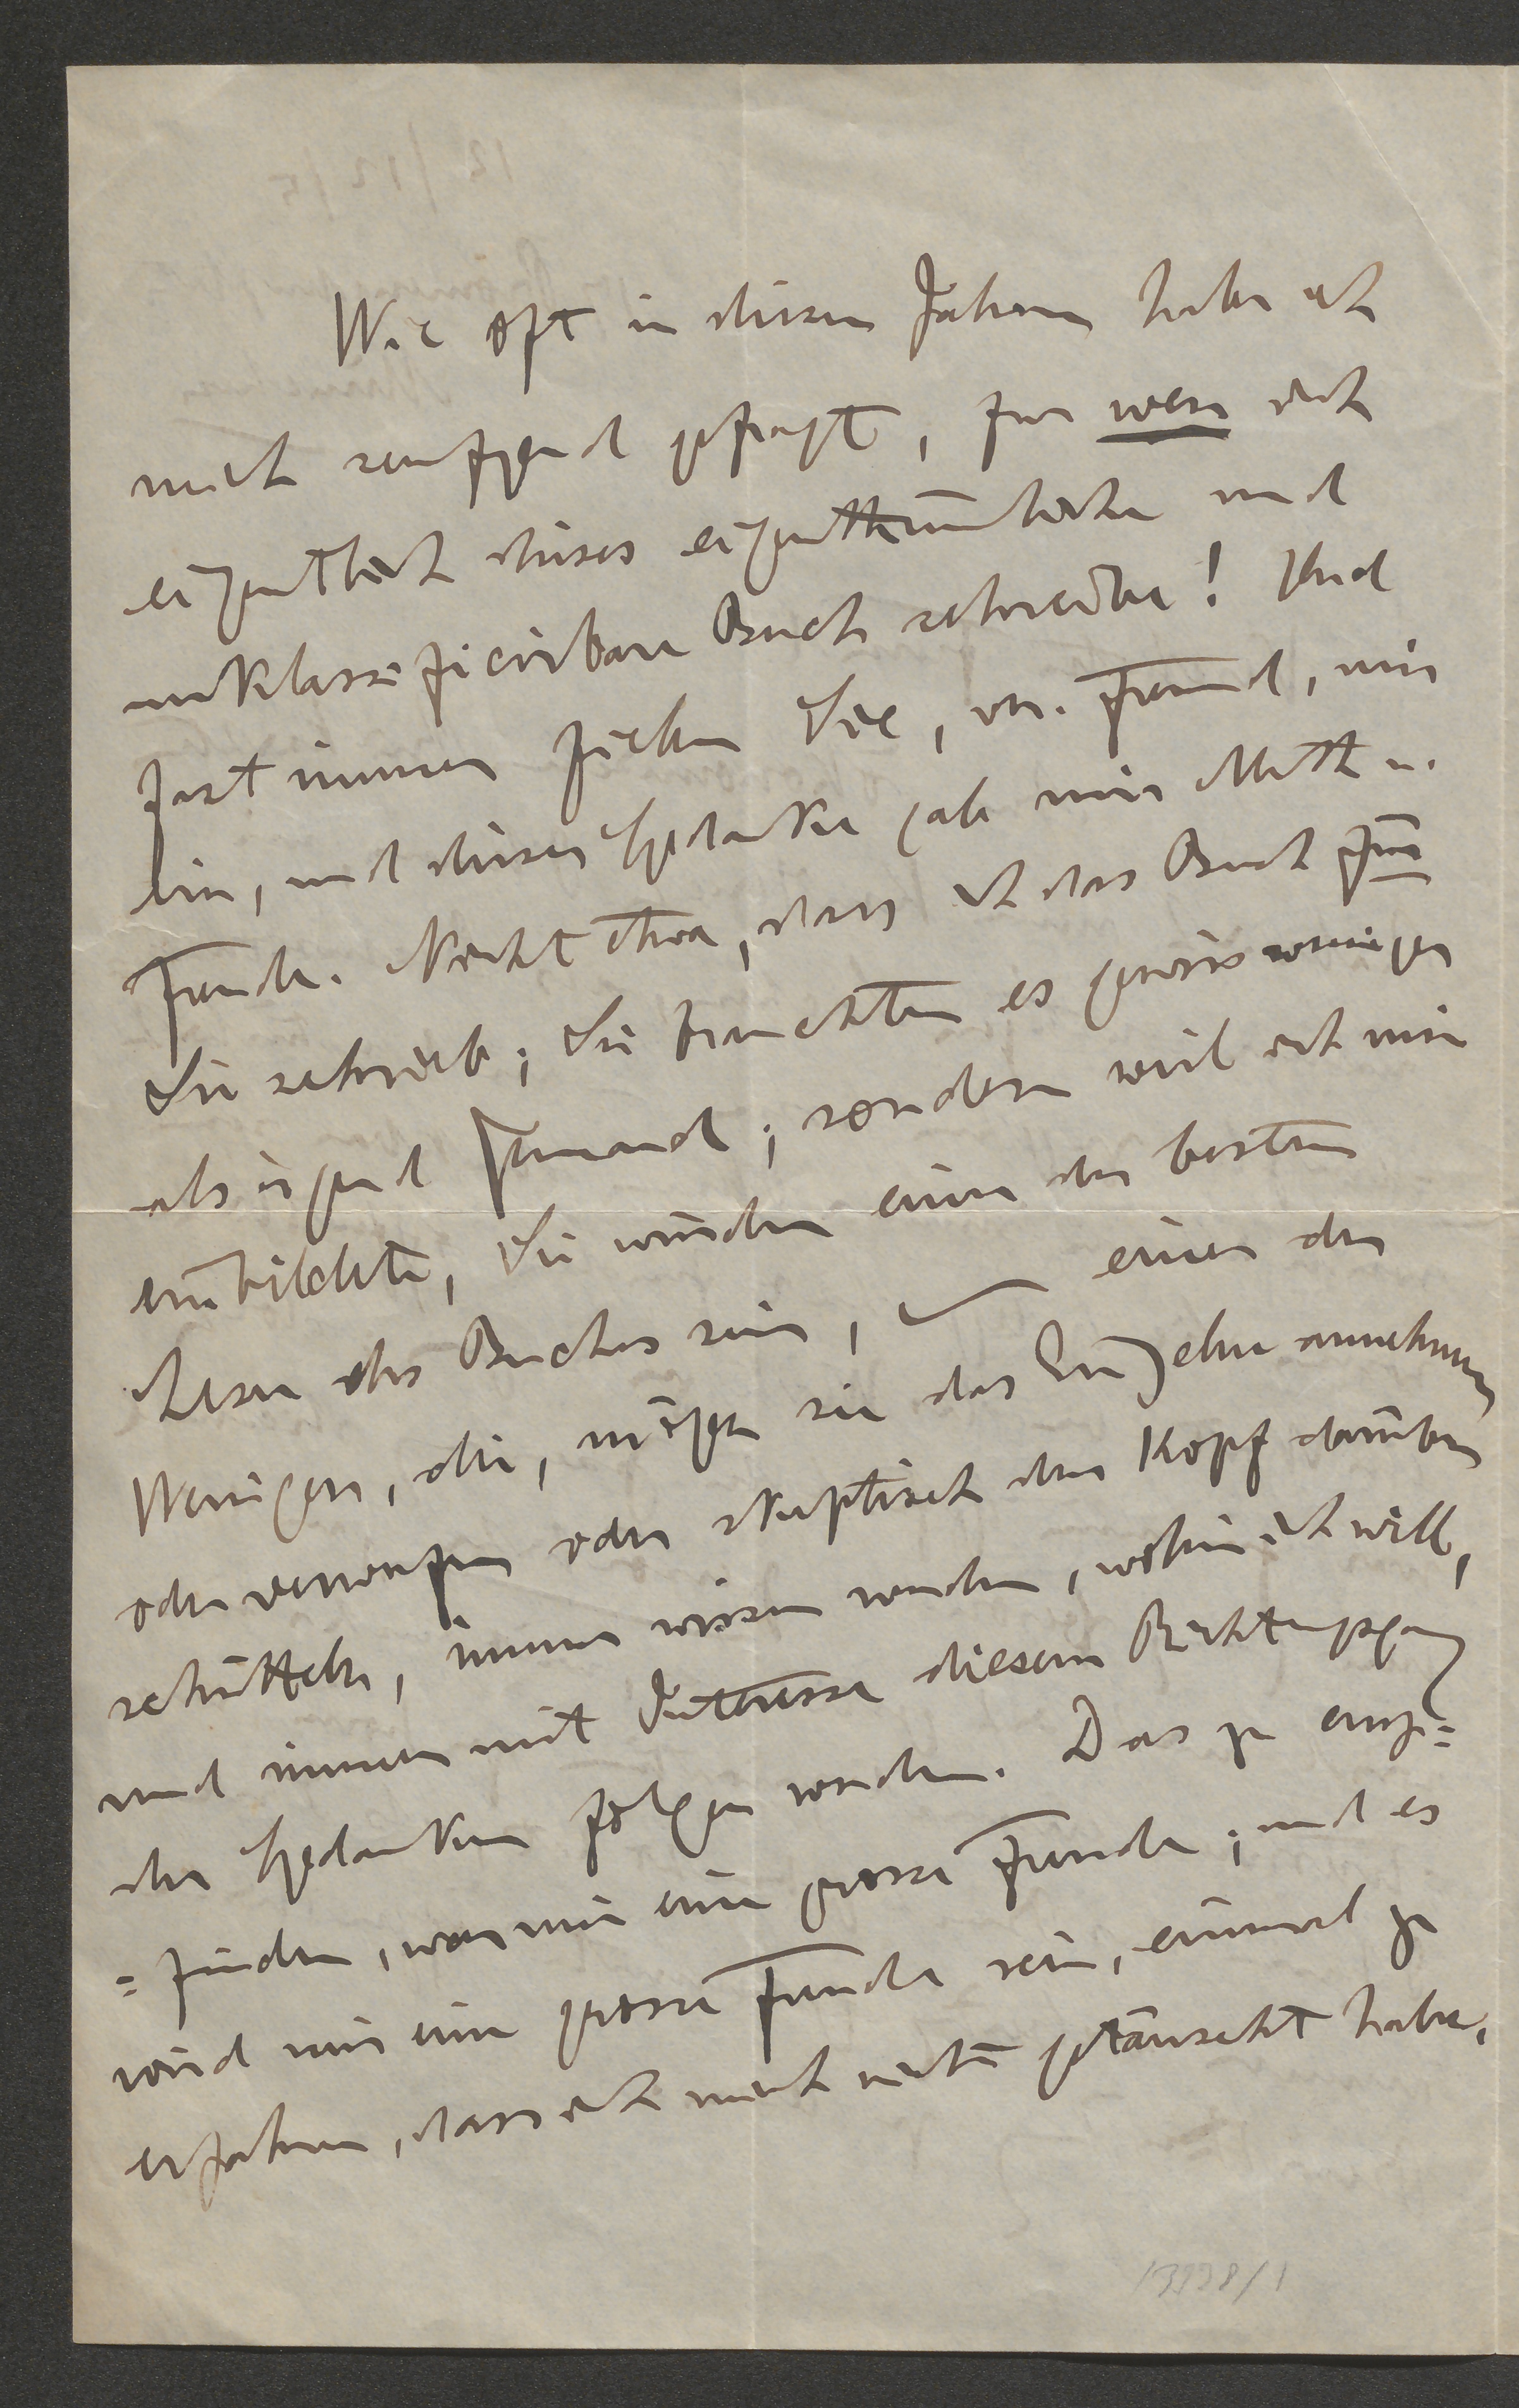 Wie oft in diesen Jahren habe ich
mich seufzend gefragt, für wen ich
eigentlich dieses eigenthümliche und
unklassificirbare Buch schreibe! Und
fast immer fielen Sie, vr. Freund, mir
ein, und dieser Gedanke gab mir Muth u.
Freude. Nicht etwa, dass ich das Buch für
Sie schrieb; Sie brauchten es gewiss weniger
als irgend Jemand; sondern weil ich mir
einbildete, Sie würden einer der besten
Leser des Buches sein, einer der
Wenigen, die, mögen sie das Einzelne annehmen
oder verwerfen oder skeptisch den Kopf darüber
schütteln, immer wissen werden, wohin ich will,
und immer mit Interesse diesem Richtungsgang
der Gedanken folgen werden. Das zu emp=
=finden, war mir eine grosse Freude; und es
wird mir eine grosse Freude sein, einmal zu
erfahren, dass ich mich nicht getäuscht habe.
13228/1